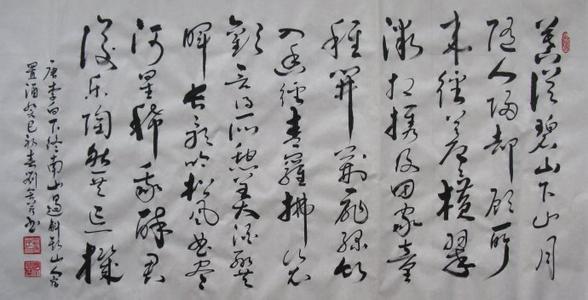 暮從碧山下山月
隨人歸却顧所
來徑蒼蒼橫翠
微相攜及田家童
稚開荊扉綠竹
入幽徑青蘿拂行衣
歡言得所憩美酒聊共
揮長歌吟松風曲盡
河星稀我醉君
復樂陶然共忘機
唐李白下終南山過斛斯山人宿
置酒癸巳